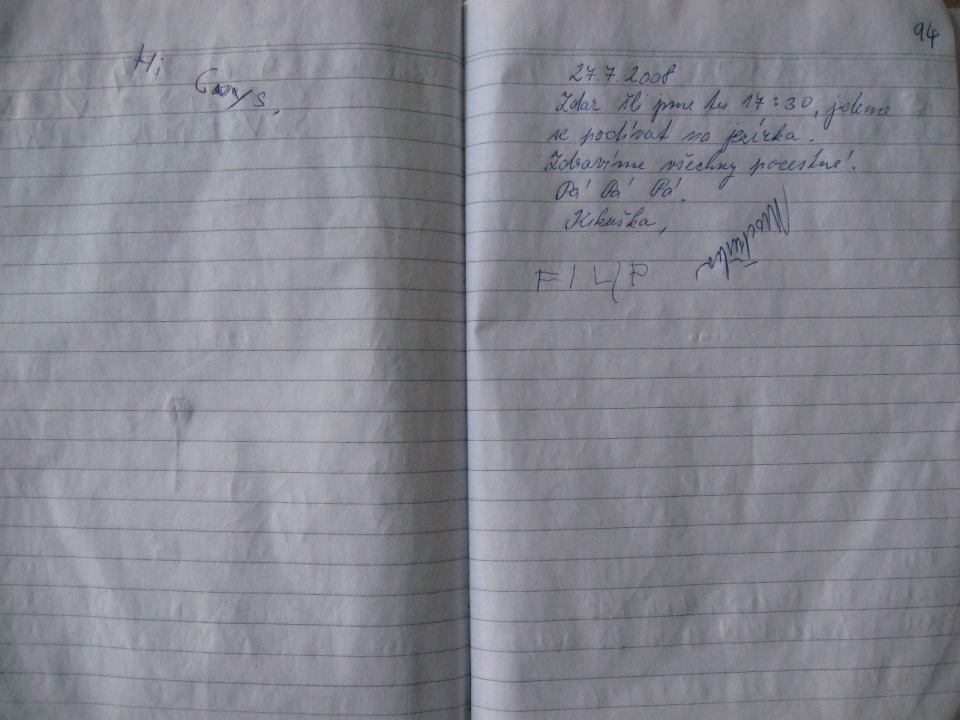 Hi
Guys,
94
27.7.2008
Zdar šli jsme tu 17:30, jdeme
se podívat na jezírka.
Zdravíme všechny pocestné!
Pá Pá Pá!
Kikuška,
FILIP